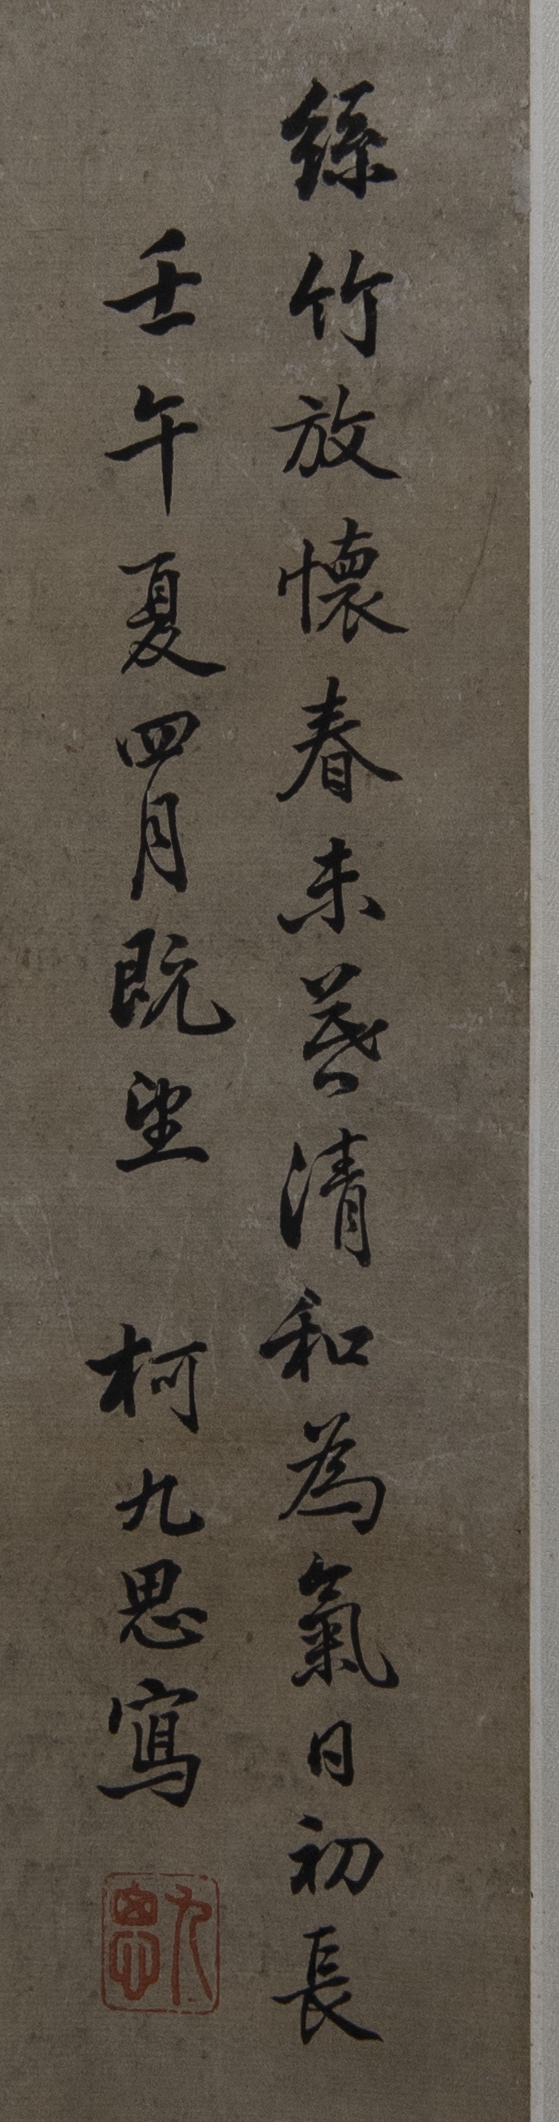 絲竹放懷春未暮清和為氣日初長
壬午夏四月既望 柯九思寫
九思